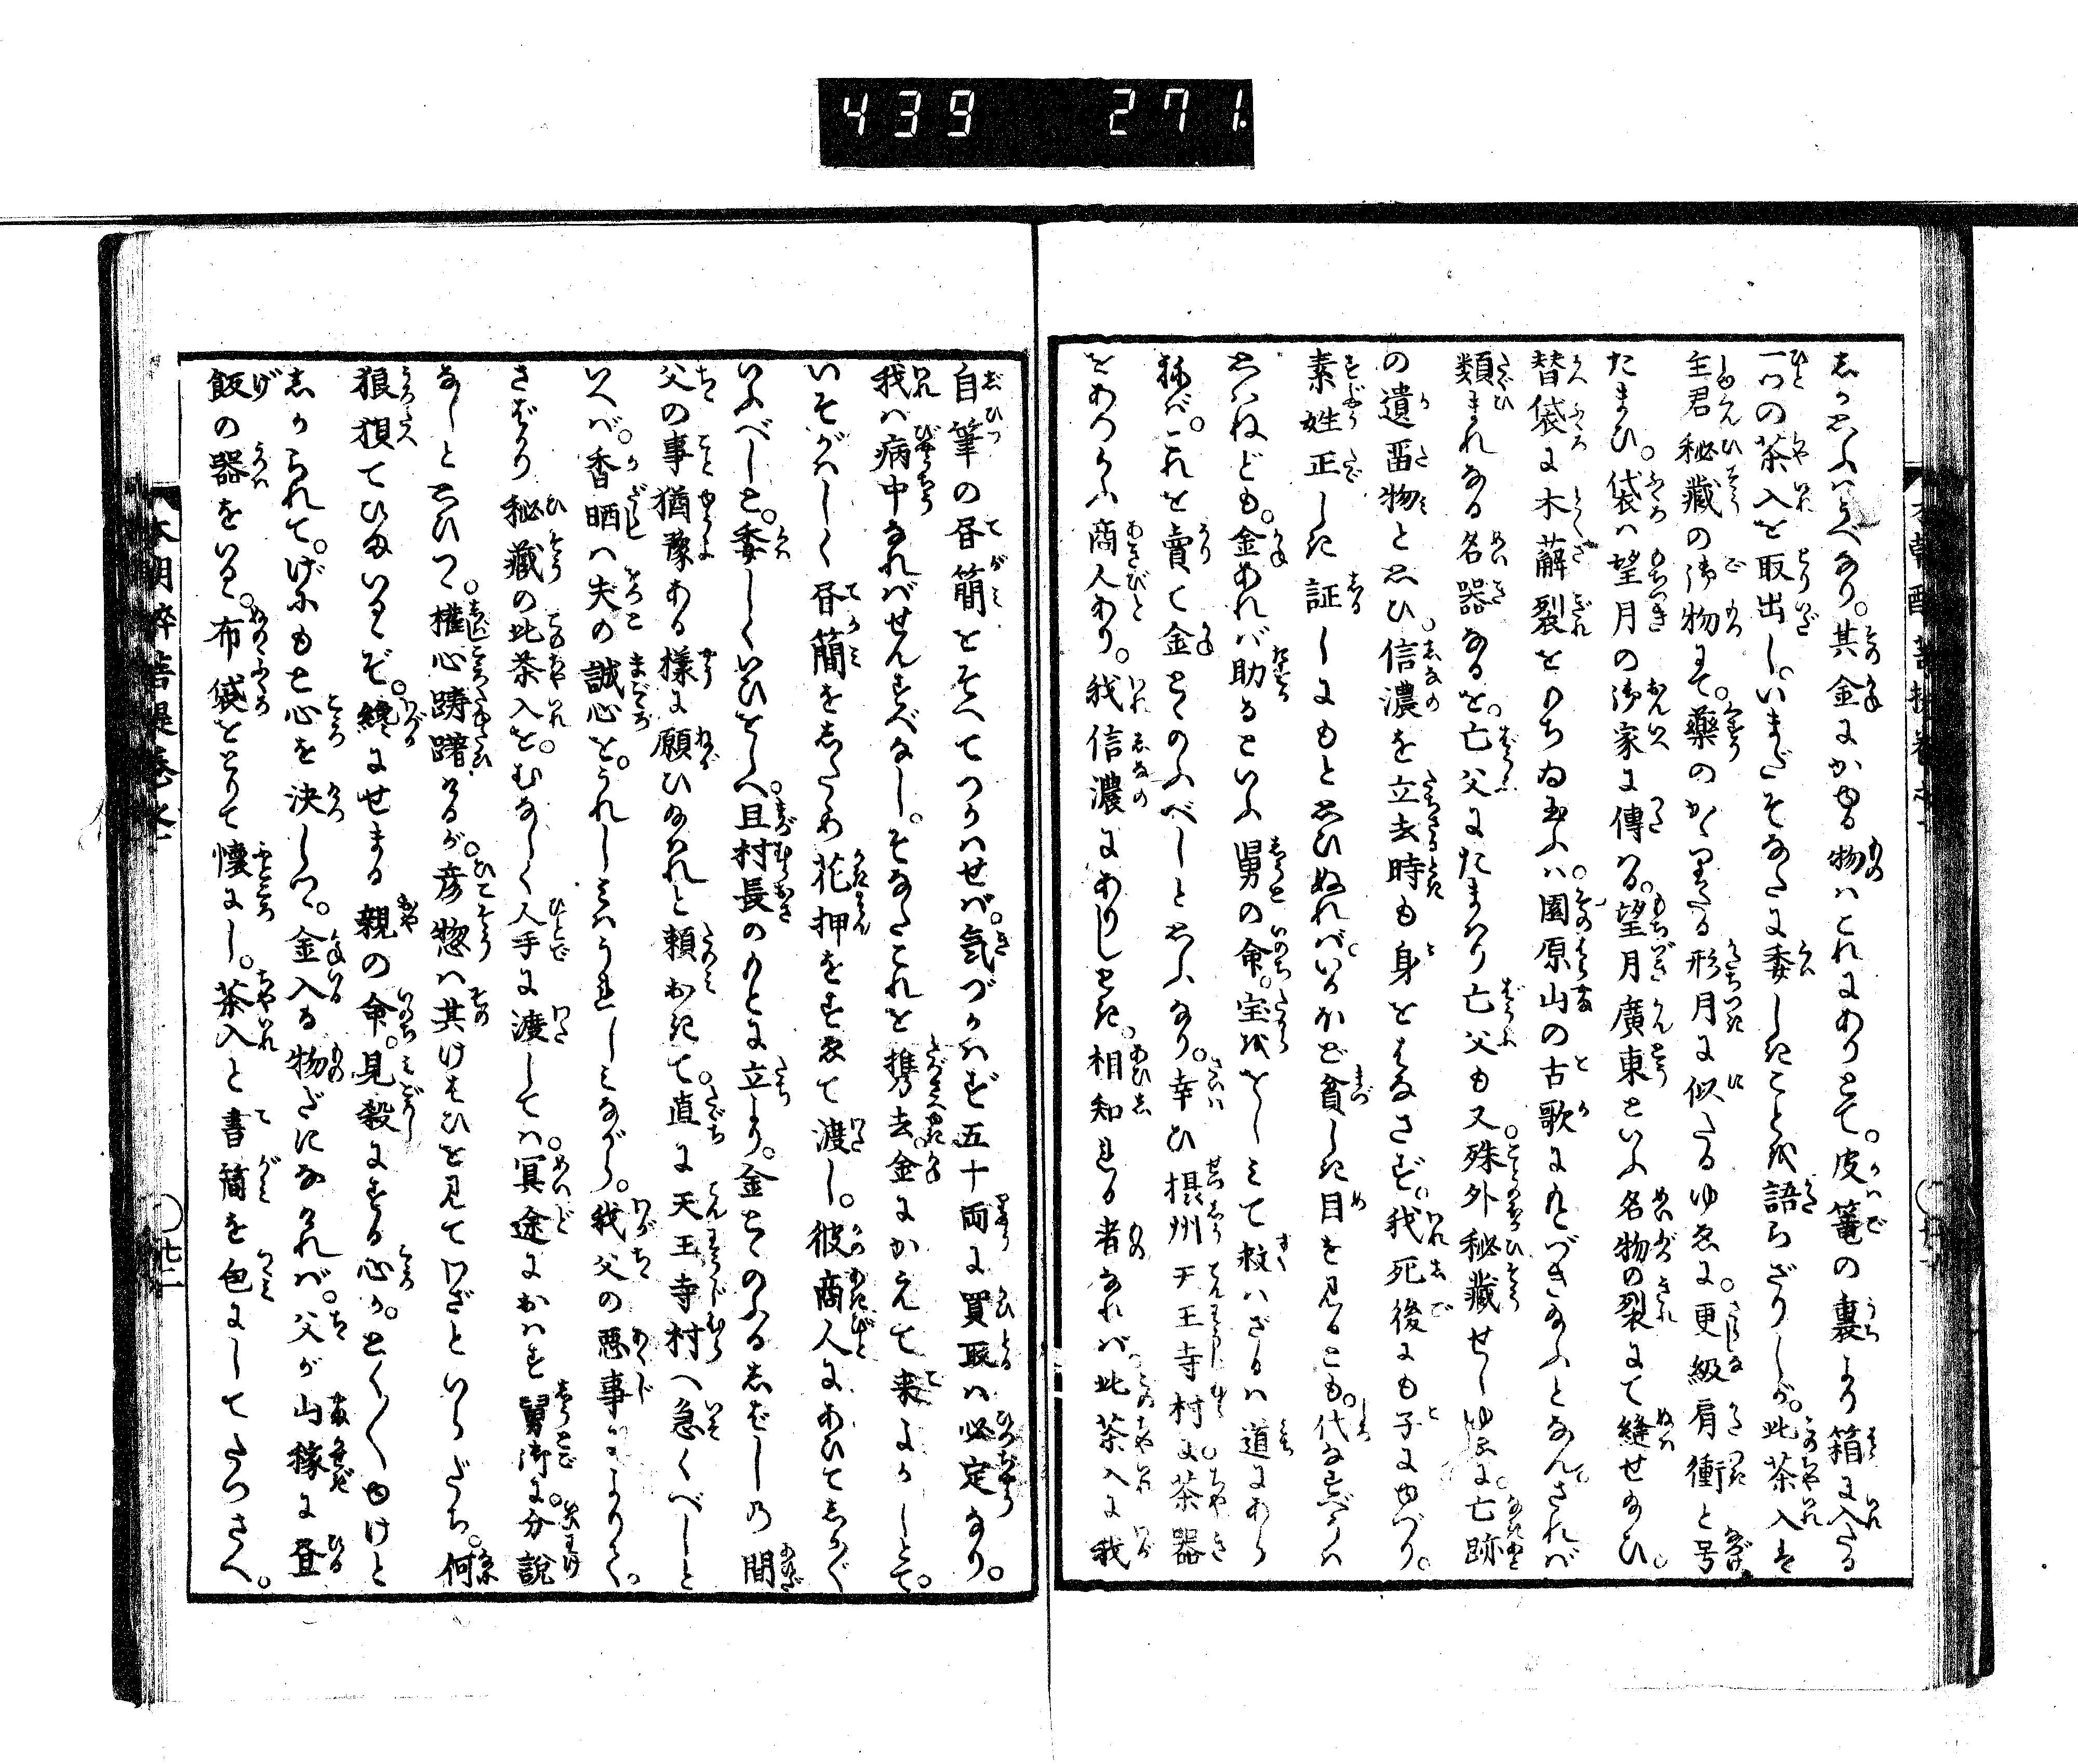 439 271.
しか思ふはうべなり。其金にかゆる物はこれにありとて。皮篭の裏より箱に入たる
一ツの茶入を取出し。いまだそなたに委しきことハ語らざりしが。此茶入は
主君秘蔵の御物にて。薬のかゝりたる形月に似たるゆゑに。更級肩衝と号
たまひ。袋ハ望月の御家に傳はる。望月廣東といふ名物の裂にて縫せ給ひ。
替袋に木蘚裂をもちゐ玉ふハ。園原山の古歌にもとづき給ふとなん。されば
類まれなる名器なるを。亡父にたまはり亡父も又殊外秘藏せしゆゑに。亡跡
の遺畱物と思ひ。信濃を立去時も身をはなさず。我死後にも子にゆづり。
素姓正しき証しにもと思ひぬれバ。いかほど貧しき目を見るとも。代なすべうハ
思ハねども。金あれバ助るといふ舅の命。宝ををしみて救ハざるハ道にあら
ねバ。これを賣て金をとゝのふべしと思ふなり。幸ひ摂州天王寺村に茶器
をあつかふ商人あり。我信濃にありしとき。相知れる者なれバ。此茶入に我
自筆の書簡をそへてつかハせバ。気づかはず五十両に買取ハ必定なり。
我ハ病中なればせんすべなし。そなたこれを携去。金にかえて来よかしとて。
いそがハしく書簡をしたゝめ花押をすゑて渡し。彼商人にあひてしか〴〵
いふべしと。委しくいひをしへ。且村長のもとに立より。金とゝのふるまでしの間
父の事猶豫ある様に願ひ給われと頼おきて。直に天王寺村へ急くべしと
いへバ。香晒ハ夫の誠心を。うれしミはうれしミながら。我父の悪事によりて。
さばかり秘藏の此茶入を。むなしく人手に渡してハ。冥途におはす舅御に。分説
なしと思ひつゝ。権心躊躇るが。彦惣ハ其けはひを見てわざといらだち。何
狼狽てひまいるぞ。纔にせまる親の命。見殺にする心か。とく〳〵ゆけと
しかられて。げにもと心を決しつゝ。金入る物ざになければ。父が山稼に昼
飯の器をいるゝ。布袋をとりて懐にし。茶入と書簡を包にしてたづさへ。